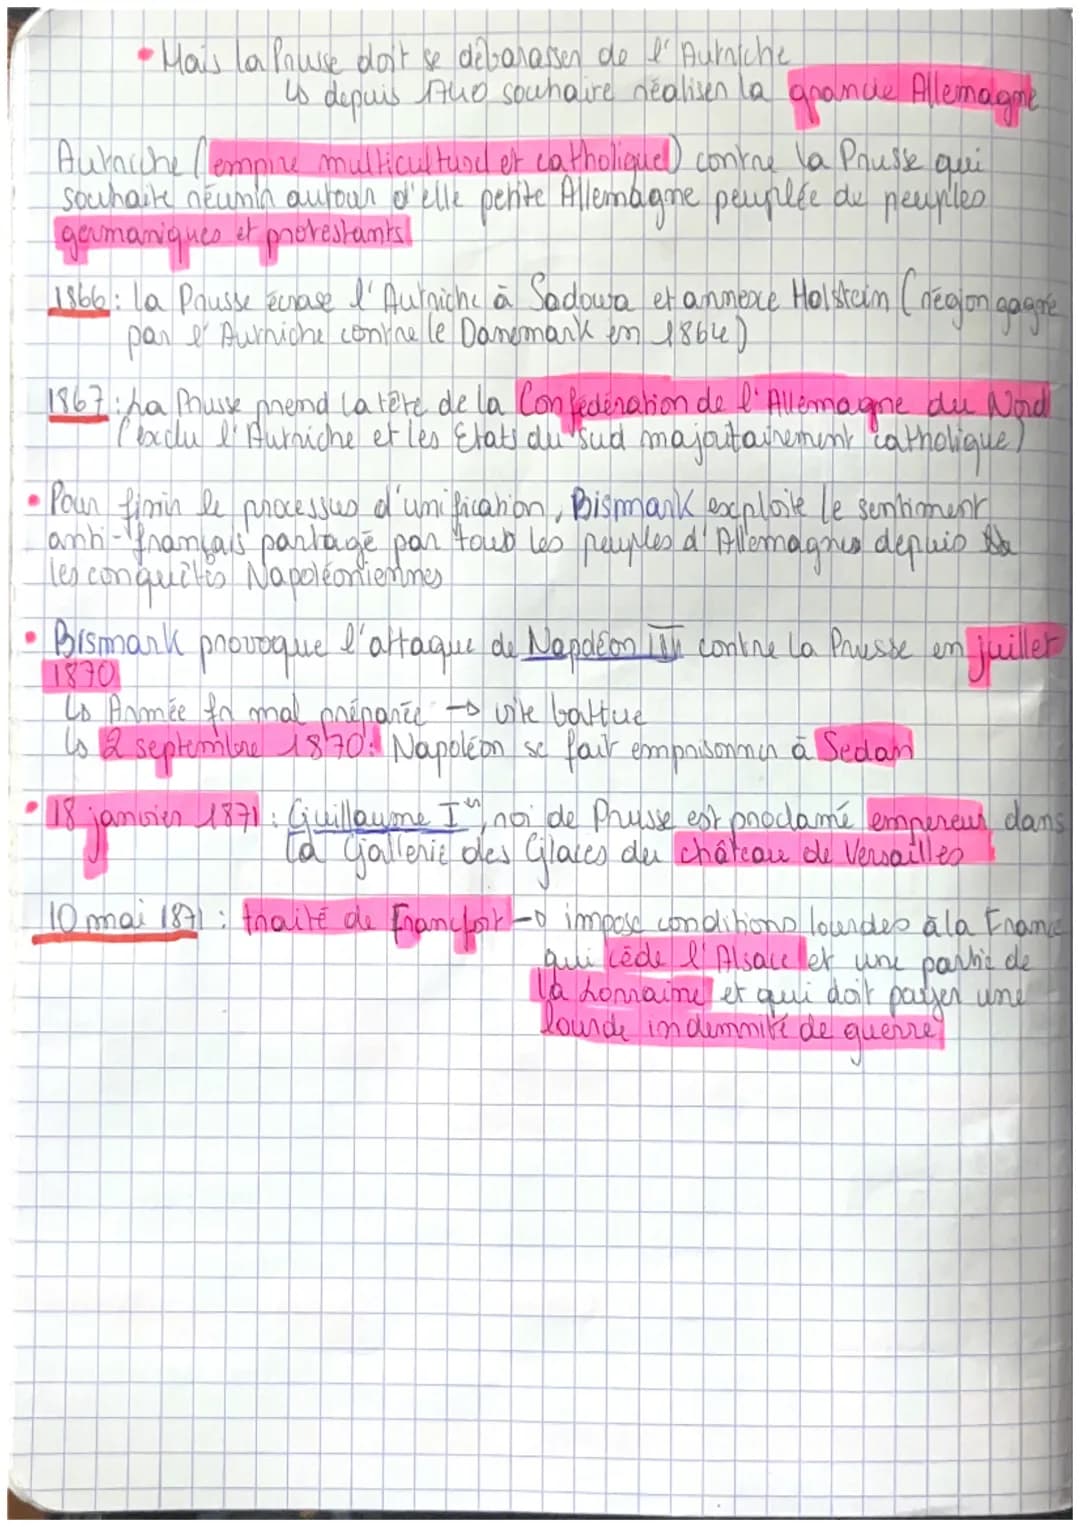 • Mais la Prusse doit se débarasser de l'Autriche
↳ depuis 1740 souhaite réaliser la grande Allemagne
Autriche (empire multiculturel et catholique) contre la Prusse qui
souhaite réunir autour d'elle petite Allemagne peuplée de peuples
germaniques et protestants
1866 : la Prusse écrase l'Autriche à Sadowa et annexe Holstein (région gagné
par l'Autriche contre le Danemark en 1864)
1867 : La Prusse prend la tête de la Confédération de l'Allemagne du Nord
(exclu l'Autriche et les Etats du sud majoritairement catholique)
• Pour finir le processus d'unification, Bismark exploite le sentiment
anti-français partagé par tous les peuples d'Allemagnes depuis
les conquêtes Napoléoniennes
• Bismark provoque l'attaque de Napoléon III contre la Prusse en juillet
1870
↳ Armée fr mal préparée → vite battue
↳ 2 septembre 1870 : Napoléon se fait emprisonner à Sedan
• 18 janvier 1871 : Guillaume Ier, roi de Prusse est proclamé empereur dans
la Gallerie des Glaces du château de Versailles
10 mai 1871 : traité de Francfort → impose conditions lourdes à la France
qui cède l'Alsace et une partie de
la Lorraine et qui doit payer une
lourde indemnité de guerre